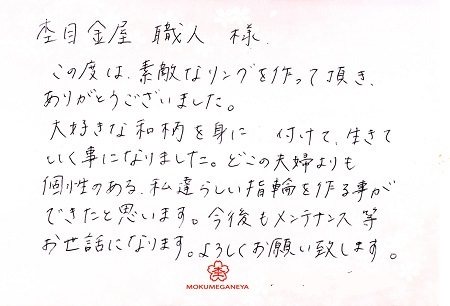 杢目金屋 職人 様.
この度は、素敵なリングを作って頂き、
ありがとうございました。
大好きな和柄を身に 付けて、生きて
いく事になりました。どこの夫婦よりも
個性のある、私達らしい指輪を作る事が
できたと思います。今後もメンテナンス等
お世話になります。よろしくお願い致します。
杢
MOKUMEGANEYA